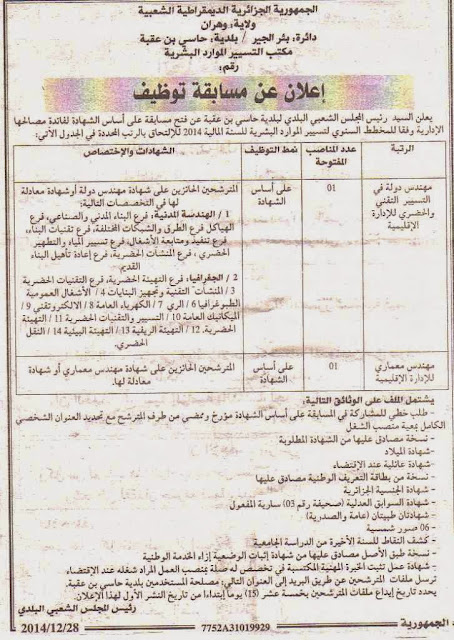 الجمهورية الجزائرية الديمقراطية الشعبية
ولاية: وهران
دائرة: بئر الجير / بلدية: حاسي بن عقبة
مكتب التسيير الموارد البشرية
رقم:
إعلان عن مسابقة توظيف
يعلن السيد رئيس المجلس الشعبي البلدي لبلدية حاسي بن عقبة عن فتح مسابقة على أساس الشهادة لفائدة مصالحها
الإدارية وفقا للمخطط السنوي لتسيير الموارد البشرية للسنة المالية 2014 للإلتحاق بالرتب المحددة في الجدول الآتي:
الرتبة
عدد المناصب المفتوحة
نمط التوظيف
الشهادات والإختصاص
مهندس دولة في
التسيير التقني
والحضري للإدارة
الإقليمية
01
على أساس
الشهادة
المترشحين الحائزين على شهادة مهندس دولة أوشهادة معادلة
لها في التخصصات التالية:
1 / الهندسة المدنية: فرع البناء المدني والصناعي، فرع
الهياكل فرع الطرق والشبكات المختلفة، فرع تقنيات البناء،
فرع تنفيذ ومتابعة الأشغال، فرع تسيير المياه والتطهير
الحضري، فرع المنشآت الحضرية، فرع إعادة تأهيل البناء
القديم
2 / الجغرافيا: فرع التهيئة الحضرية، فرع التقنيات الحضرية
3 / المنشآت التقنية وتجهيز البنايات 4 / الأشغال العمومية
الطبوغرافيا 6 / الري 7 / الكهرباء العامة 8 / الالكتروتقني 9 /
الميكانيك العامة 10 / التسيير والتقنيات الحضرية 11 / التهيئة
الحضرية. 12 / التهيئة الريفية 13 / التهيئة البيئية 14 / النقل
الحضري.
مهندس معماري
للإدارة الإقليمية
01
على أساس
الشهادة
المترشحين الحائزين على شهادة مهندس معماري أو شهادة
معادلة لها.
يشتمل الملف على الوثائق التالية:
- طلب خطي للمشاركة في المسابقة على أساس الشهادة مؤرخ وممضي من طرف المترشح مع تحديد العنوان الشخصي
الكامل بمعية منصب الشغل
- نسخة مصادق عليها من الشهادة المطلوبة
- شهادة الميلاد
- شهادة عائلية عند الإقتضاء
- نسخة من بطاقة التعريف الوطنية مصادق عليها
- شهادة الجنسية الجزائرية
- شهادة السوابق العدلية (صحيفة رقم 03) سارية المفعول
- شهادتان طبيتان (عامة والصدرية)
- 06 صور شمسية
- كشف النقاط للسنة الأخيرة من الدراسة الجامعية
- نسخة طبق الأصل مصادق عليها من شهادة إثبات الوضعية إزاء الخدمة الوطنية
- شهادة عمل تثبت الخبرة المهنية المكتسبة في تخصص له صلة بمنصب العمل المراد شغله عند الإقتضاء
ترسل ملفات المترشحين عن طريق البريد إلى العنوان التالي: مصلحة المستخدمين بلدية حاسي بن عقبة.
يحدد تاريخ إيداع ملفات المترشحين بخمسة عشر (15) يوما إبتداءا من تاريخ النشر الأول لهذا الإعلان.
رئيس المجلس الشعبي البلدي
الجمهورية
7752A31019929
2014/12/28